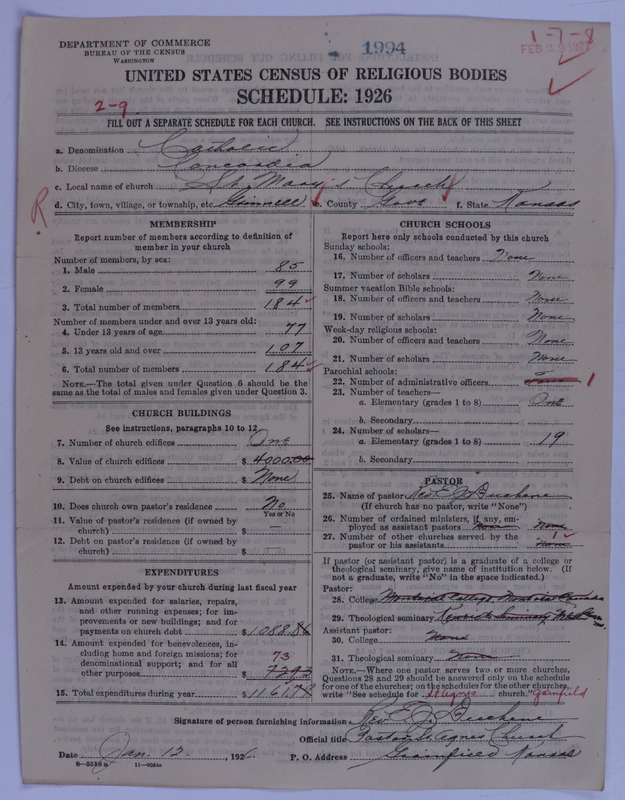 DEPARTMENT OF COMMERCE
BUREAU OF THE CENSUS
WASHINGTON
1994
1-7-8
FEB 1927
UNITED STATES CENSUS OF RELIGIOUS BODIES
SCHEDULE: 1926
2-9
FILL OUT A SEPARATE SCHEDULE FOR EACH CHURCH. SEE INSTRUCTIONS ON THE BACK OF THIS SHEET
a. Denomination Catholic
b. Diocese Concordia
c. Local name of church St Mary's Church
d. City, town, village, or township, etc. Grinnell e. County Gove f. State Kansas
R
MEMBERSHIP
Report number of members according to definition of member in your church
Number of members, by sex:
1. Male 85
2. Female 99
3. Total number of members 184
Number of members under and over 13 years old:
4. Under 13 years of age 77
5. 13 years old and over 107
6. Total number of members 184
NOTE.—The total given under Question 6 should be the
same as the total of males and females given under Question 3.
CHURCH BUILDINGS
See instructions, paragraphs 10 to 12
7. Number of church edifices One
8. Value of church edifices $ 4000.00
9. Debt on church edifices $ None
10. Does church own pastor's residence No
Yes or No
11. Value of pastor's residence (if owned by
church) $ —
12. Debt on pastor's residence (if owned by
church) $
EXPENDITURES
Amount expended by your church during last fiscal year
13. Amount expended for salaries, repairs,
and other running expenses; for im-
provements or new buildings; and for
payments on church debt $ 1088.
14. Amount expended for benevolences, in-
cluding home and foreign missions; for
denominational support; and for all
other purposes $ 73 72.92
15. Total expenditures during year $ 1161.78
CHURCH SCHOOLS
Report here only schools conducted by this church
Sunday schools:
16. Number of officers and teachers None
17. Number of scholars None
Summer vacation Bible schools:
18. Number of officers and teachers None
19. Number of scholars None
Week-day religious schools:
20. Number of officers and teachers None
21. Number of scholars None
Parochial schools:
22. Number of administrative officers 1
23. Number of teachers—
a. Elementary (grades 1 to 8) One
b. Secondary
24. Number of scholars—
a. Elementary (grades 1 to 8) 19
b. Secondary
PASTOR
25. Name of pastor Rev.
(If church has no pastor, write "None")
26. Number of ordained ministers, if any, em-
ployed as assistant pastors None None
27. Number of other churches served by the
pastor or his assistants 1 None
If pastor (or assistant pastor) is a graduate of a college or
theological seminary, give name of institution below. (If
not a graduate, write "No" in the space indicated.)
Pastor:
28. College Montreal College, Montreal Canada
29. Theological seminary Seminary
Assistant pastor:
30. College None
31. Theological seminary None
NOTE.—Where one pastor serves two or more churches,
Questions 28 and 29 should be answered only on the schedule
for one of the churches; on the schedules for the other churches,
write "See schedule for St Agnes church." Grainfield
Signature of person furnishing information Rev.
Official title Pastor St Agnes Church
Date Jan. 12, 192
P. O. Address Grainfield Kansas
8—5518a 11—9584a